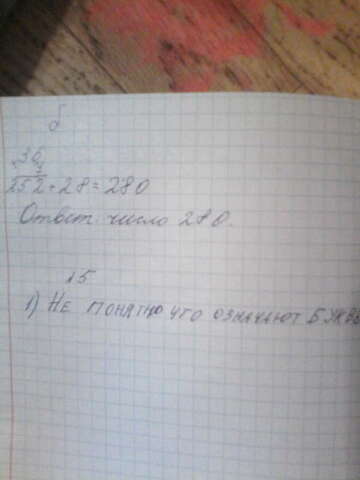 б
36
252 + 28 = 280
Ответ: число 280.
15
1) Не понятно что означают букв